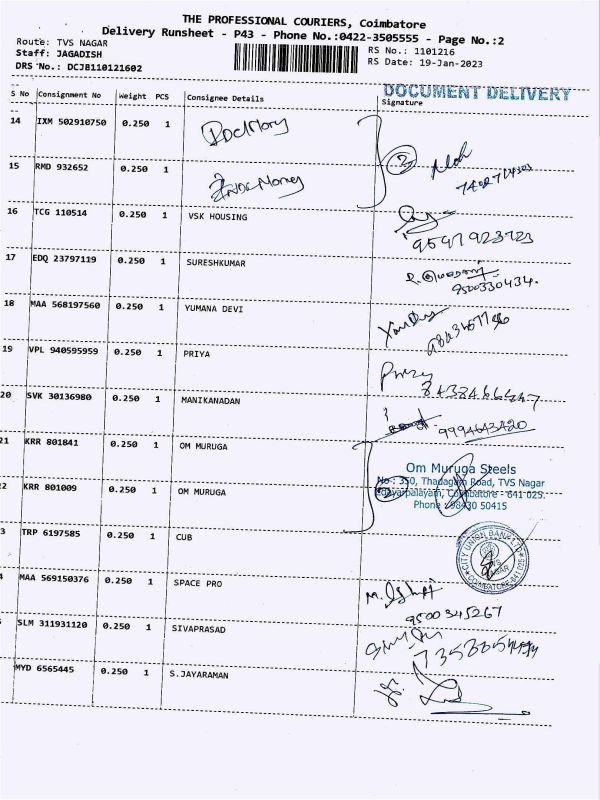 THE PROFESSIONAL COURIERS, Coimbatore
Delivery Runsheet - P43 - Phone No.:0422-3505555 - Page No.:2
Route: TVS NAGAR
Staff: JAGADISH
DRS No.: DCJB110121602
RS No.: 1101216
RS Date: 19-Jan-2023
DOCUMENT DELIVERY
S No Consignment No Weight PCS Consignee Details Signature
14 IXM 502910750 0.250 1
15 RMD 932652 0.250 1
2
16 TCG 110514 0.250 1 VSK HOUSING
9597923723
17 EDQ 23797119 0.250 1 SURESHKUMAR
9500330434.
18 MAA 568197560 0.250 1 YUMANA DEVI
19 VPL 940595959 0.250 1 PRIYA
20 SVK 30136980 0.250 1 MANIKANADAN
9994643420
21 KRR 801841 0.250 1 OM MURUGA
Om Muruga Steels
No : 350, Thadagam Road, TVS Nagar
Edayarpalayam, Coimbatore - 641 025.
Phone : 98430 50415
2 KRR 801009 0.250 1 OM MURUGA
3 TRP 6197585 0.250 1 CUB
CITY UNION BANK LTD
TVS NAGAR
COIMBATORE-641 025
4 MAA 569150376 0.250 1 SPACE PRO
9500345267
SLM 311931120 0.250 1 SIVAPRASAD
MYD 6565445 0.250 1 S.JAYARAMAN